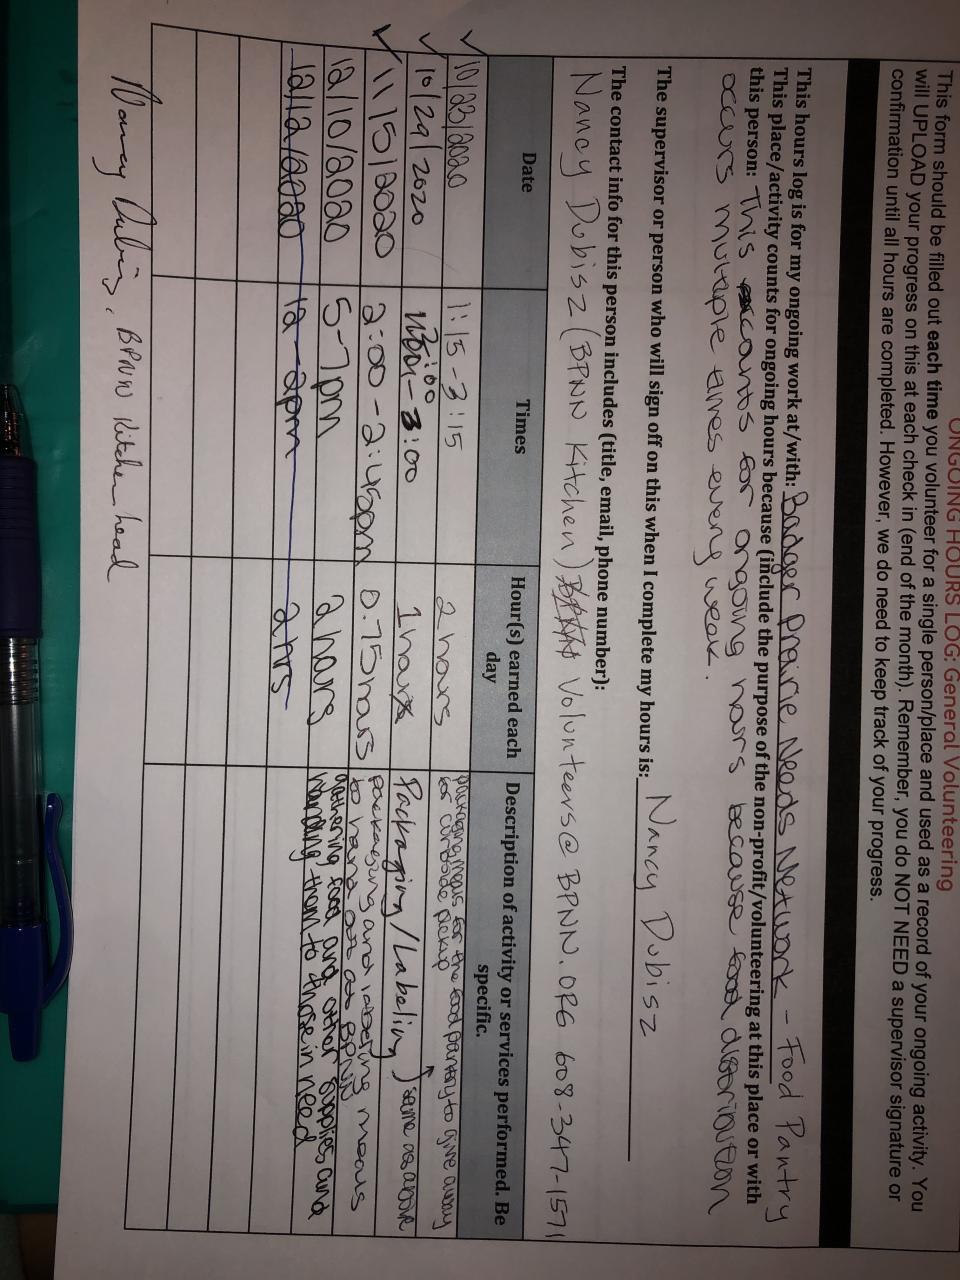 ONGOING HOURS LOG: General Volunteering
This form should be filled out each time you volunteer for a single person/place and used as a record of your ongoing activity. You
will UPLOAD your progress on this at each check in (end of the month). Remember, you do NOT NEED a supervisor signature or
confirmation until all hours are completed. However, we do need to keep track of your progress.
This hours log is for my ongoing work at/with: Badger Prairie Needs Network - Food Pantry
This place/activity counts for ongoing hours because (include the purpose of the non-profit/volunteering at this place or with
this person: This counts for ongoing hours because food distribution
occurs multiple times every weak.
The supervisor or person who will sign off on this when I complete my hours is: Nancy Dubisz
The contact info for this person includes (title, email, phone number):
Nancy Dubisz (BPNN Kitchen) Volunteers@BPNN.ORG 608-347-1571
Date Times Hour(s) earned each day Description of activity or services performed. Be specific.
10/23/2020 1:15-3:15 2 hours packaging meals for the food pantry to give away for curbside pickup
10/29/2020 3:00 1 hour Packaging/Labeling same as above
11/5/2020 2:00-2:45pm 0.75 hours packaging and labeling meals to hand out at BPNN
12/10/2020 5-7pm 2 hours gathering food and other supplies and handing them to those in need
12/12/2020 12-2pm 2 hrs
Nancy Dubisz, BPNN Kitchen head